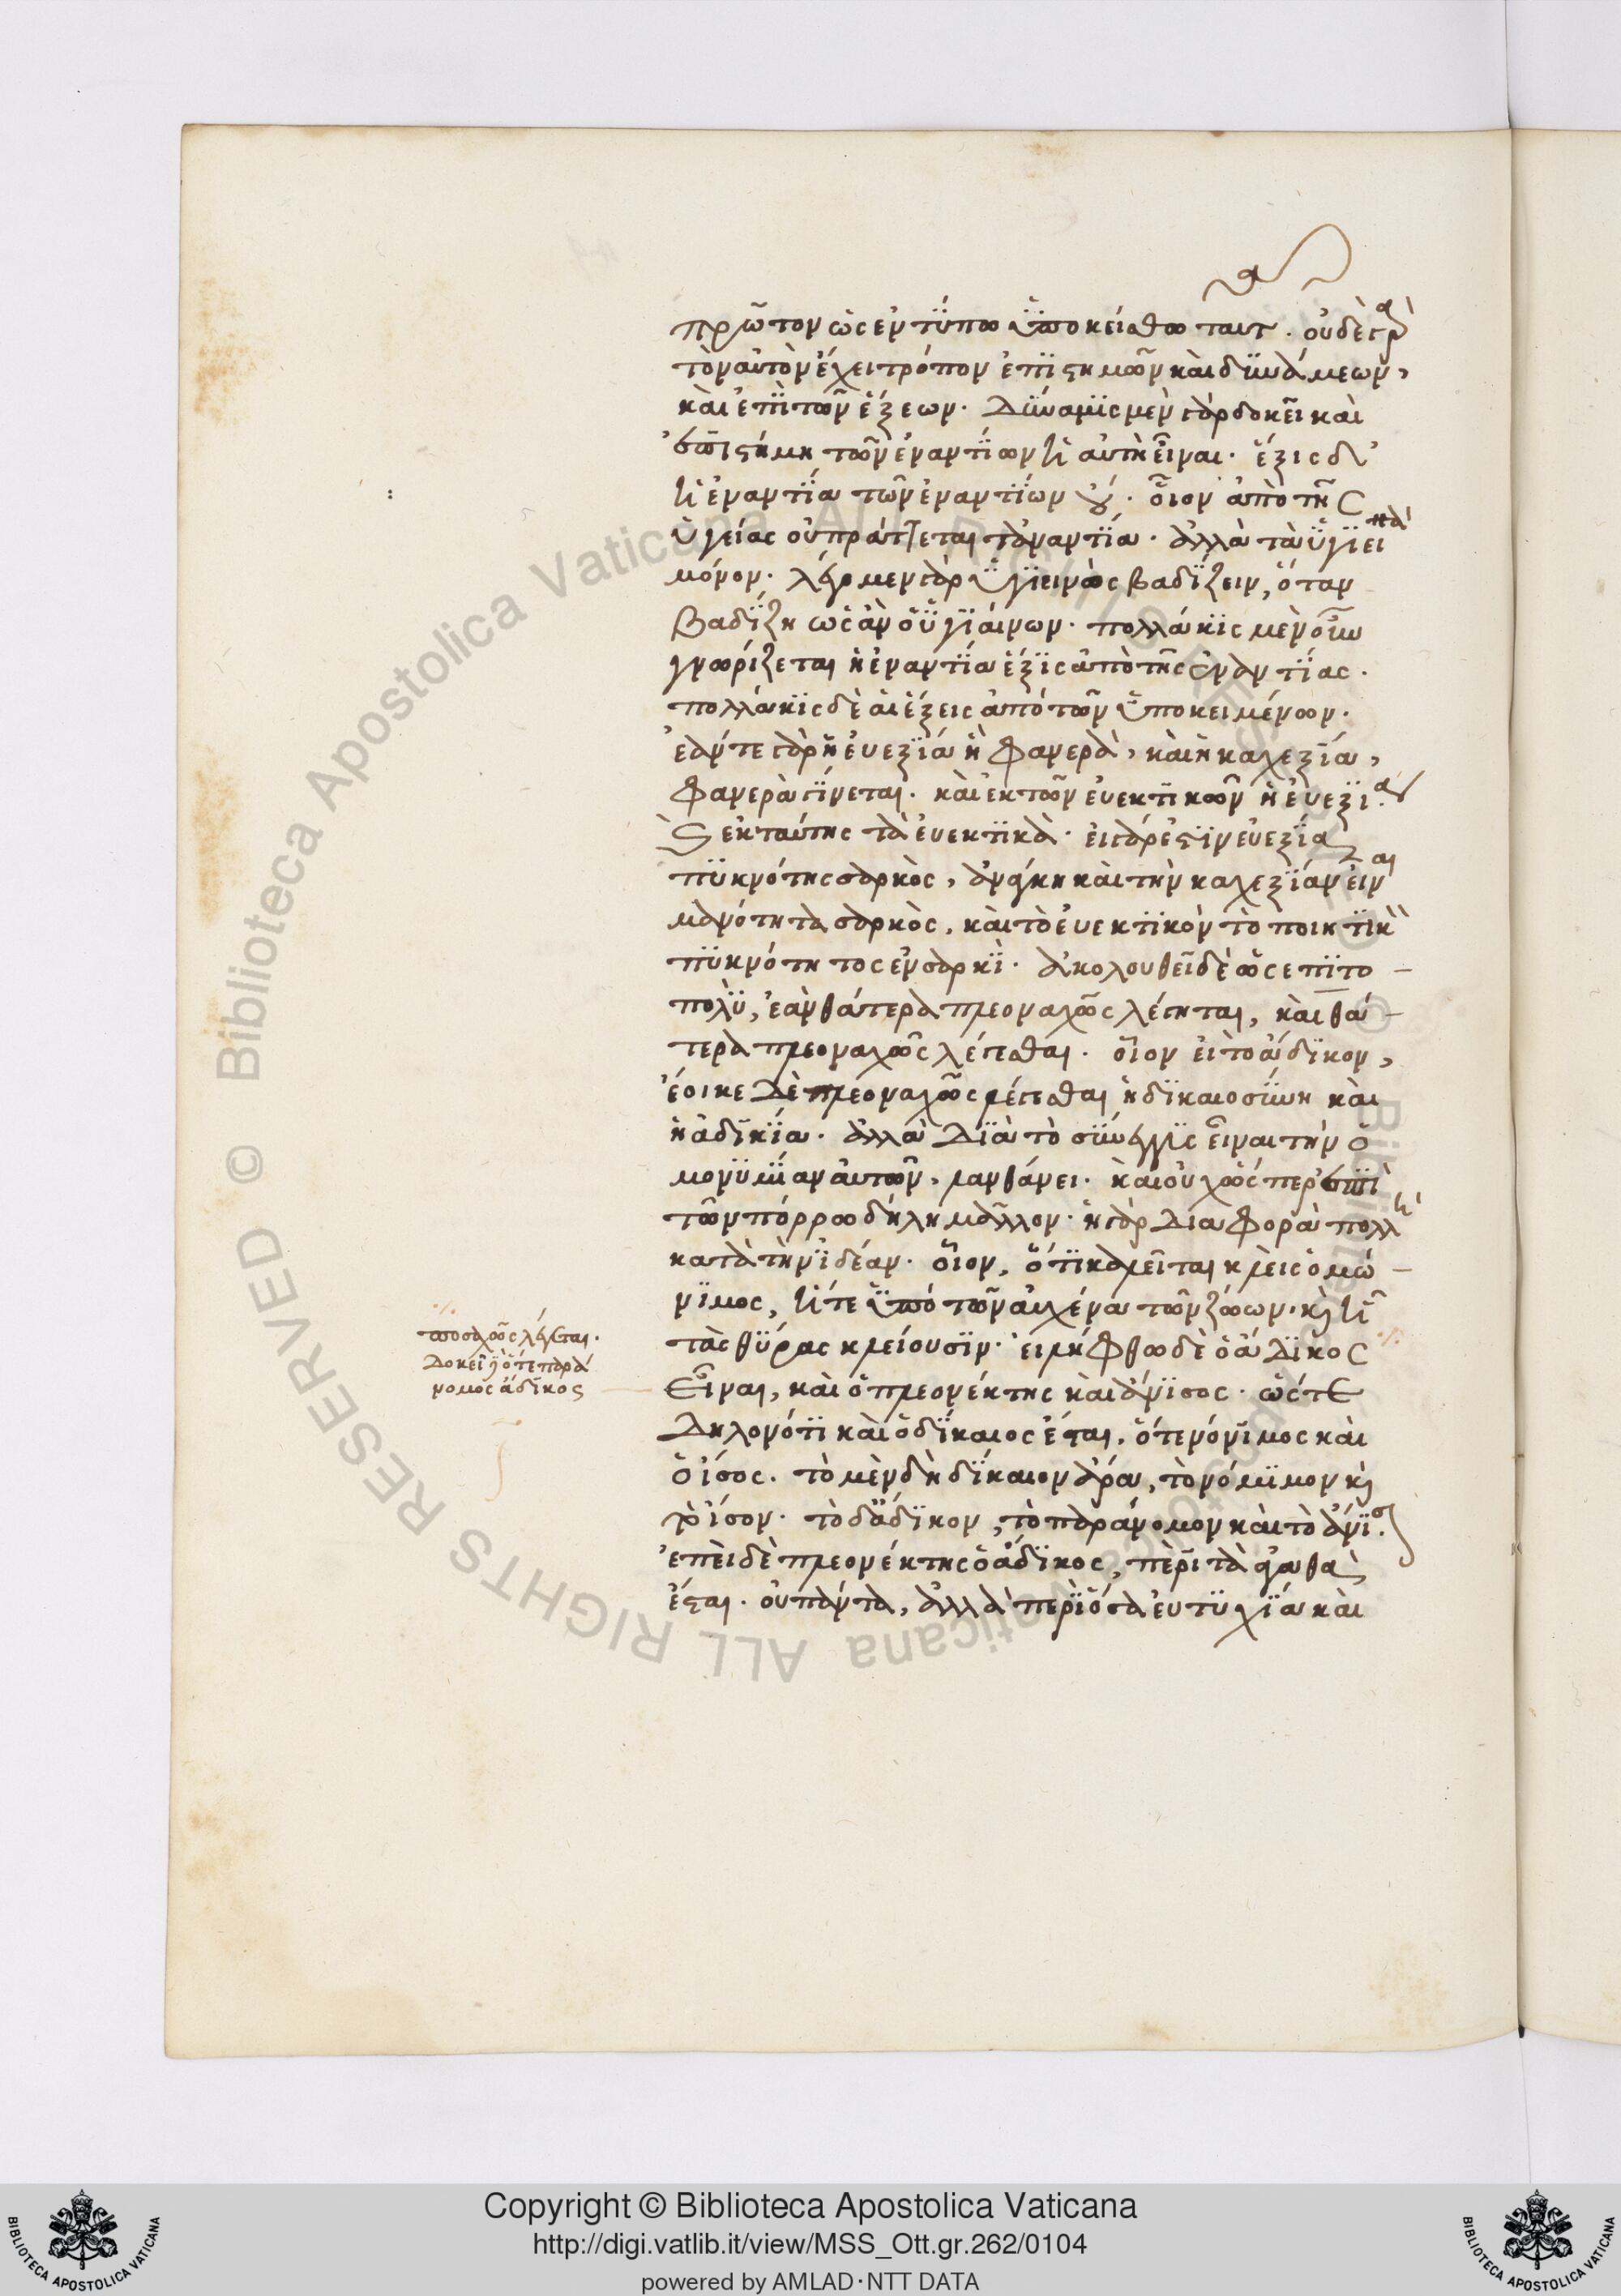 πρῶτον ὡς ἐν τύπω ὑποκείσθω ταῦτα. οὐδὲ γὰρ
τὸν αὐτὸν ἔχει τρόπον ἐπϊστημῶν καὶ δϋνάμεων,
καὶ ἐπὶ τῶν ἕξεων. Δύναμϊς μὲν γὰρ δοκεῖ καὶ
ἐπιστήμη τῶν ἐναντΐων ἡ αὐτὴ εἶναι. ἕξις δ'
ἡ ἐναντΐα τῶν ἐναντΐων οὔ. οἷον ἀπὸ τῆς
ὑγείας οὐ πράττεται τὰναντΐα. ἀλλὰ τὰ ὑγϊεινὰ
μόνον. λέγομεν γὰρ ὑγϊεινῶς βαδΐζειν, ὅταν
βαδΐζη ὡς ἂν ὁ ὑγϊαίνων. πολλάκϊς μὲν οὖν
γνωρίζεται ἡ ἐναντΐα ἕξϊς ἀπὸ τῆς ἐναντΐας.
πολλάκϊς δὲ αἱ ἕξεις ἀπὸ τῶν ὑποκειμένων.
ἐάν τε γὰρ ἡ εὐεξΐα ἢ φανερὰ, καὶ ἡ καχεξΐα,
φανερὰ γΐνεται. καὶ ἐκ τῶν εὐεκτϊκῶν ἡ εὐεξία
καὶ ἐκ ταύτης τὰ εὐεκτϊκά. εἰ γάρ ἐστϊν εὐεξΐα
πϋκνότης σαρκὸς, ἀνάγκη καὶ τὴν καχεξΐαν εἶναι
μανότητα σαρκὸς. καὶ τὸ εὐεκτϊκὸν τὸ ποιητϊκὸν
πϋκνότητος ἐν σαρκΐ. ἀκολουθεῖ δὲ ὡς ἐπϊτο –
πολὺ, ἐὰν θάτερα πλεοναχῶς λέγηται, καὶ θά –
τερα πλεοναχῶς λέγεσθαι. οἷον εἰ τὸ ἄδϊκον,
ἔοικε Δὲ πλεοναχῶς λέγεσθαι ἡ δϊκαιοσύνη καὶ
ἡ ἀδϊκΐα. ἀλλὰ Δϊὰ τὸ σύνεγγϋς εἶναι τὴν ὁ
μονϋμΐαν αὐτῶν, λανθάνει. καὶ οὐχ ὥσπερ ἐπὶ
τῶν πόρρω δήλη μᾶλλον. ἡ γὰρ Διαφορὰ πολλὴ
κατὰ τὴν ἰδέαν. οἷον, ὅτϊ καλεῖται κλεὶς ὁμώ –
νϊμος, ἥ τε ὑπὸ τῶν αὐχένα τῶν ζώων. καὶ ἧ
τὰς θύρας κλείουσϊν. εἰλήφθω δὲ ὁ ἄΔϊκος
ποσαχῶς λέγεται.
Δοκεῖ δὴ ὅ τε παρά
νομος ἄδικος
Εἶναι, καὶ ὁ πλεονέκτης καὶ ἄνϊσος. ὥστε
Δηλονότϊ καὶ ὁ δΐκαιος ἔσται. ὅ τε νόνϊμος καὶ
ὁ ἴσος. τὸ μὲν δὴ δΐκαιον ἄρα, τὸ νόμϊμον καὶ
τὸ ἴσον. τὸ δ' ἄδϊκον, τὸ παράνομον καὶ τὸ ἄνϊσον.
ἐπεὶ δὲ πλεονέκτης ὁ ἄδϊκος, περὶ τὰ ἀγαθὰ
ἔσται. οὐ πάντα, ἀλλὰ περὶ ὅσα εὐτϋχΐα καὶ
Copyright © Biblioteca Apostolica Vaticana
http://digi.vatlib.it/view/MSS_Ott.gr.262/0104
powered by AMLAD·NTT DATA